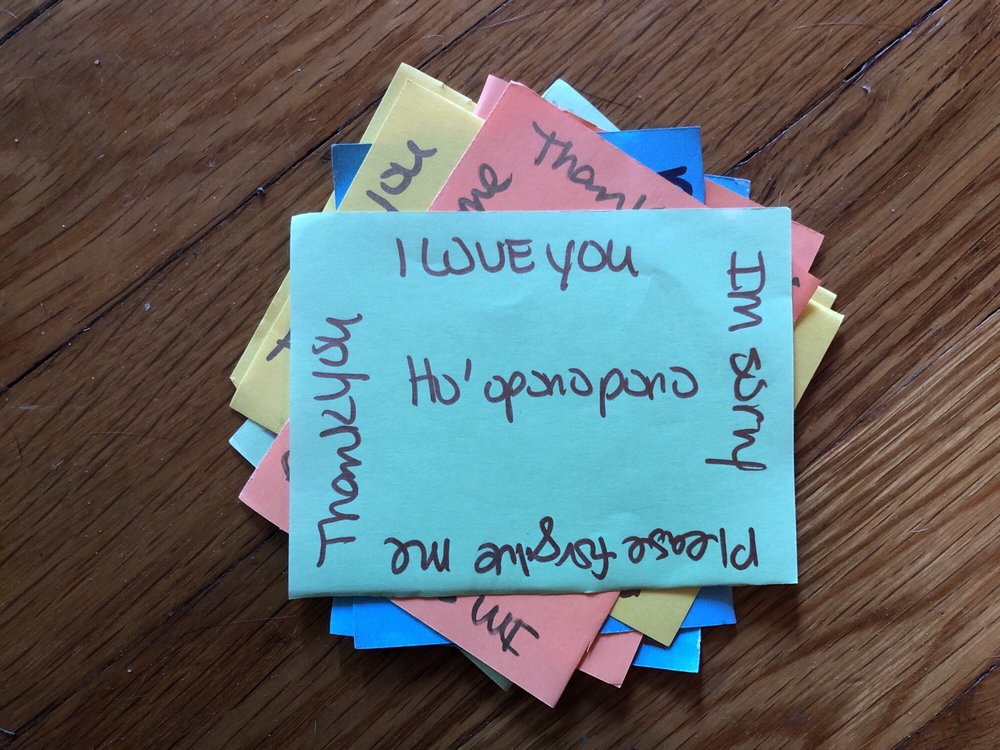 I LOVE YOU
IM sorry
Please forgive me
Thank you
Ho'oponopono
you
me
Thank
Im